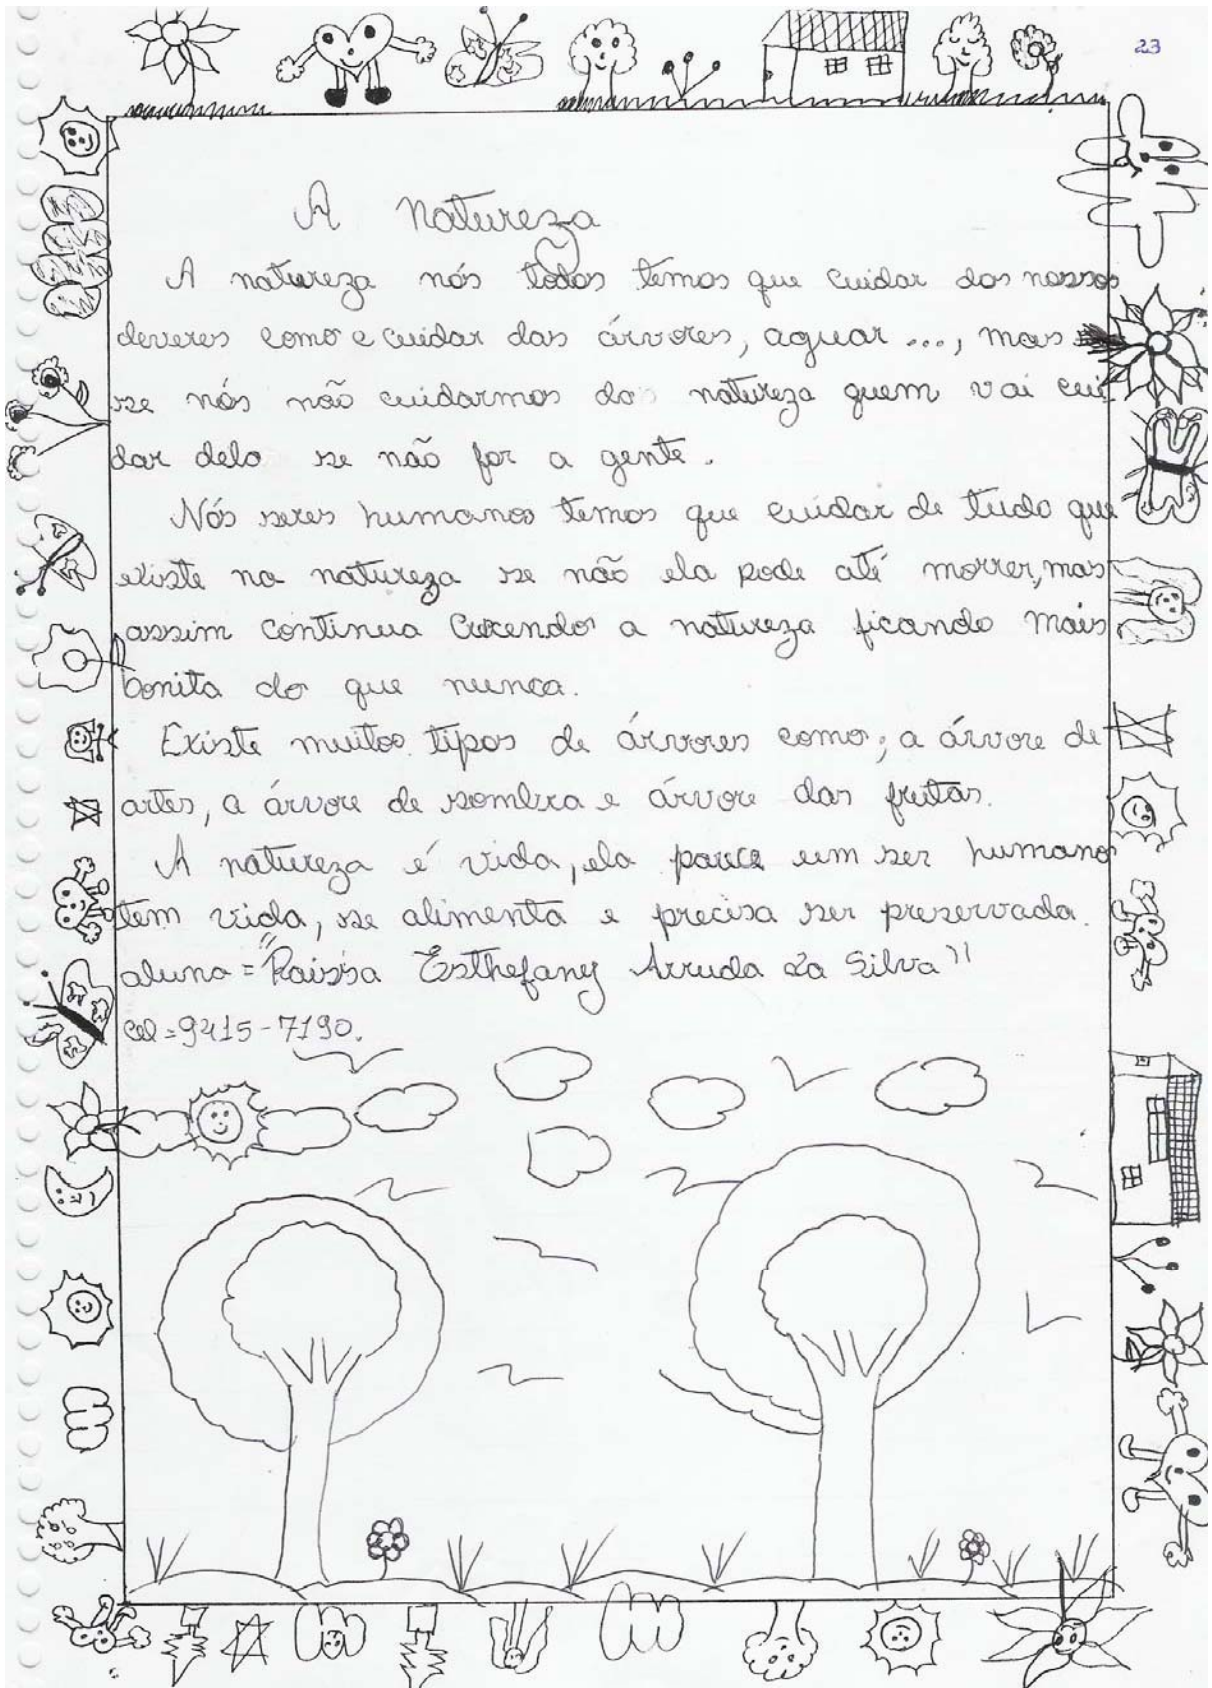 23
A Natureza
A natureza nós todos temos que cuidar dos nossos
deveres como e cuidar das árvores, aguar ..., mas
se nós não cuidarmos da natureza quem vai cui-
dar dela se não for a gente.
Nós seres humanos temos que cuidar de tudo que
existe na natureza se não ela pode até morrer, mas
assim continua crecendo a natureza ficando mais
bonita do que nunca.
Existe muitos tipos de árvores como; a árvore de
artes, a árvore de sombra e árvore das frutas.
A natureza é vida, ela parece um ser humano
tem vida, se alimenta e precisa ser preservada.
aluna = "Raissa Esthefany Arruda Da Silva"
cel = 9415-7190.